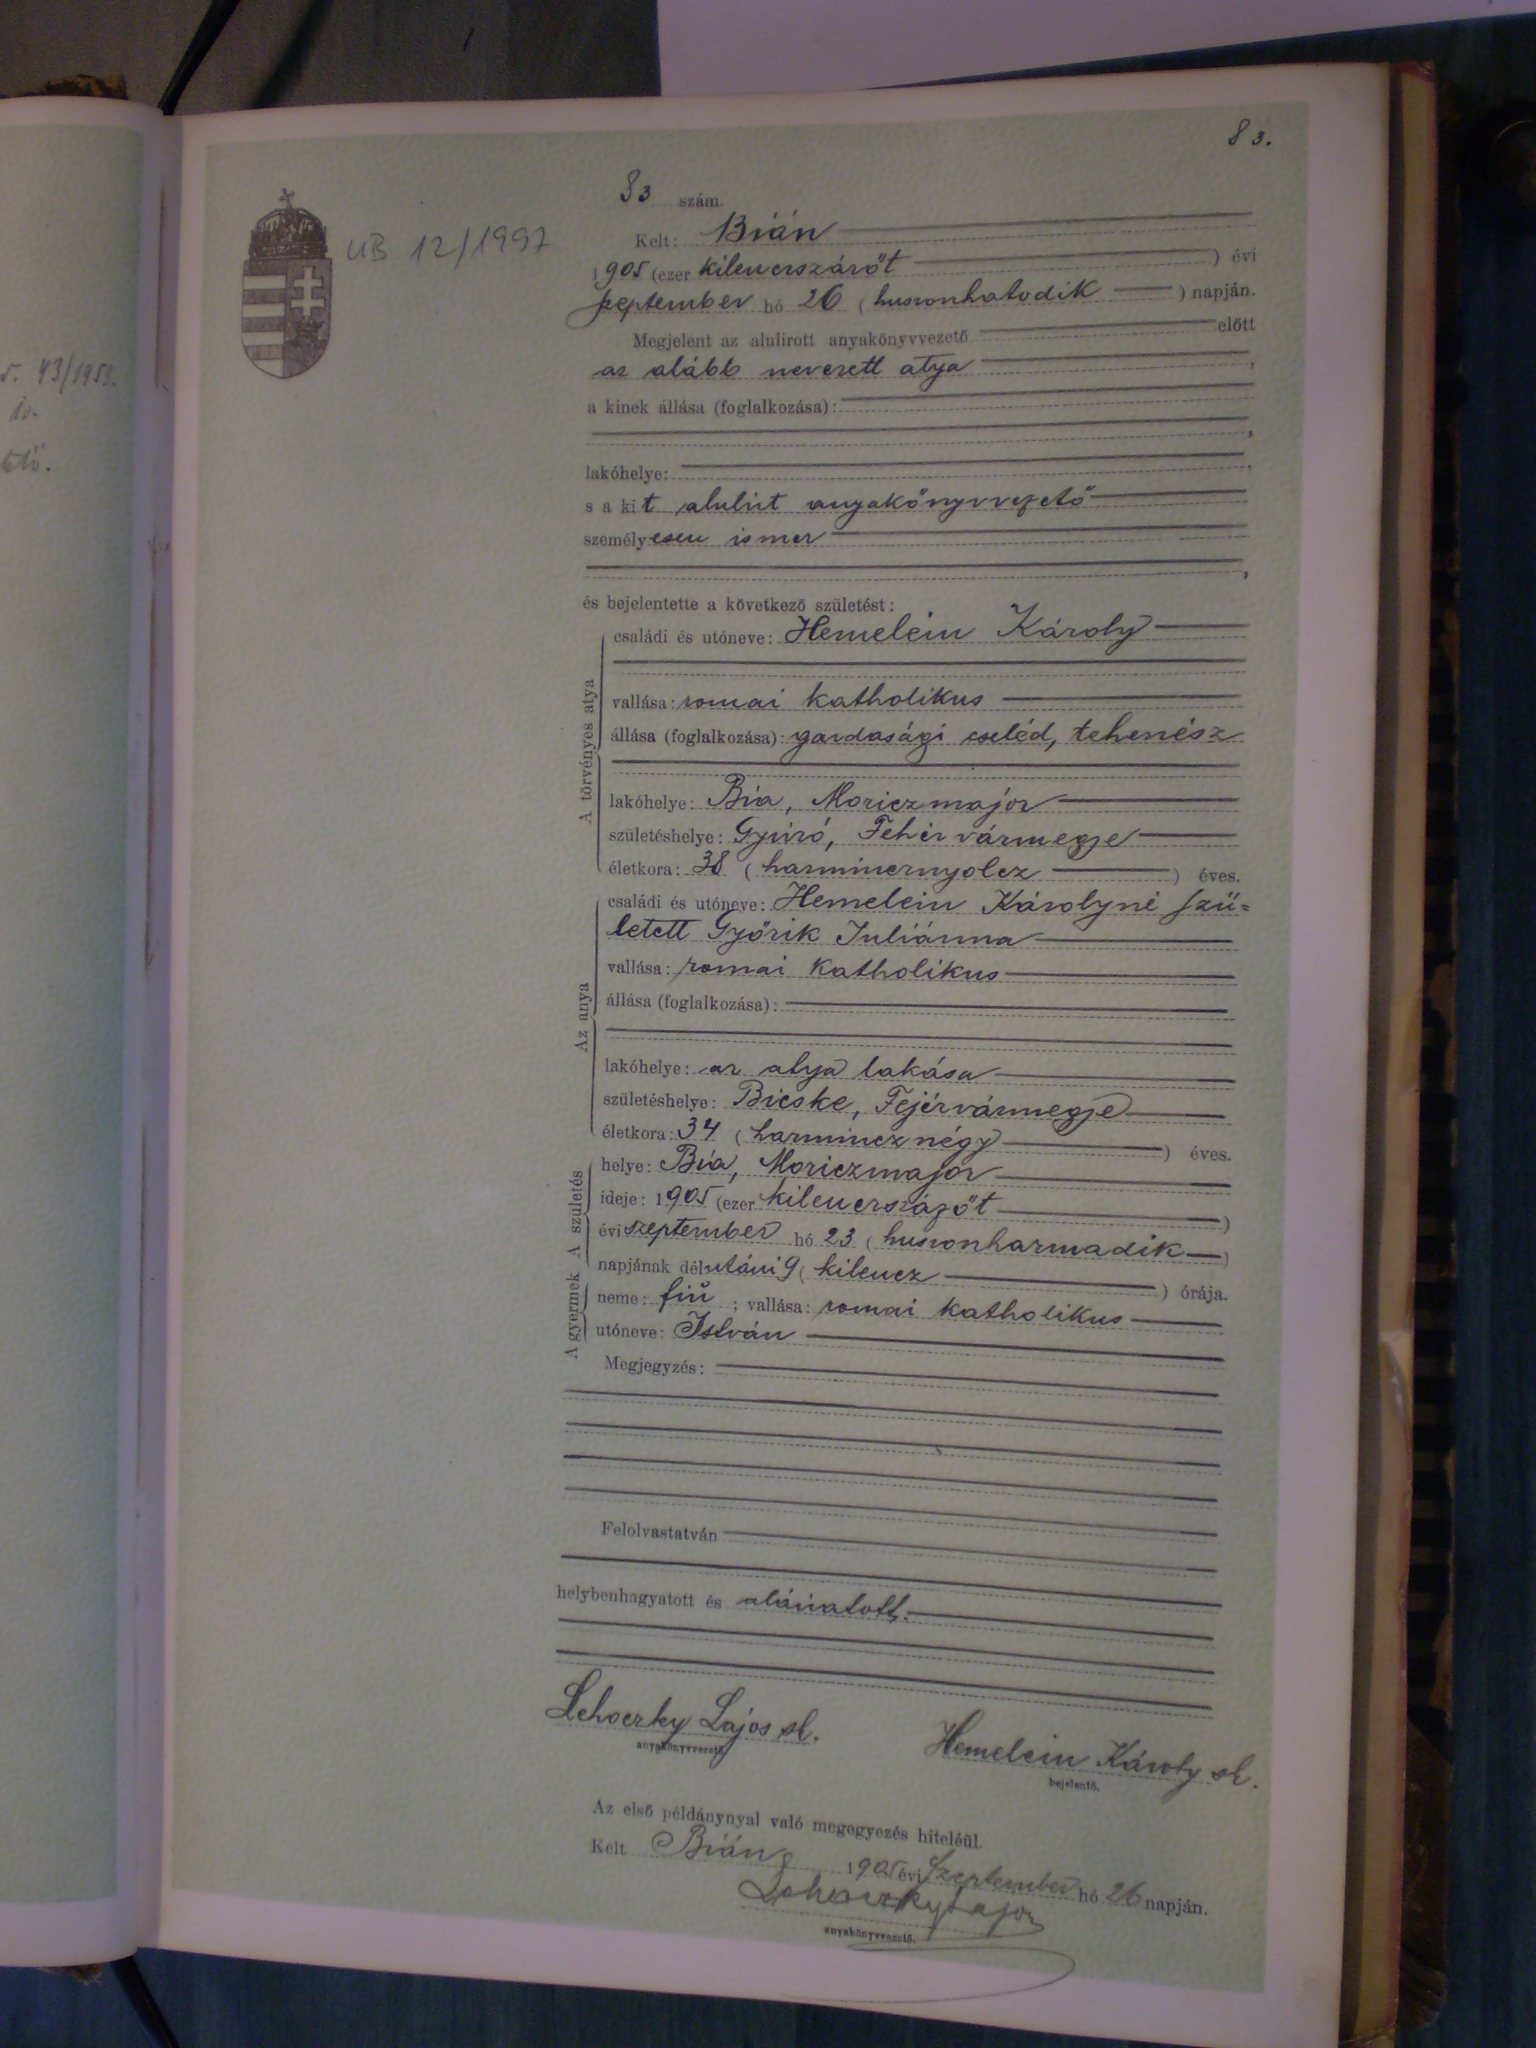 83.
83 szám.
UB 12/1997
Kelt: Bián
1905 (ezer kilenczszázöt ) évi
szeptember hó 26 (huszonhatodik ) napján.
Megjelent az alulirott anyakönyvvezető előtt
az alább nevezett atya ,
a kinek állása (foglalkozása):
,
lakóhelye: ,
s a kit alulirt anyakönyvvezető
személyesen ismer
,
és bejelentette a következő születést:
A törvényes atya
családi és utóneve: Hemelein Károly
vallása: romai katholikus
állása (foglalkozása): gazdasági cseléd, tehenész
lakóhelye: Bia, Moriczmajor
születéshelye: Gyúró, Fehérvármegye
életkora: 38 (harmincznyolcz ) éves.
Az anya
családi és utóneve: Hemelein Károlyné szü=
letett Győrik Juliánna
vallása: romai katholikus
állása (foglalkozása):
lakóhelye: az atya lakása
születéshelye: Bicske, Fejérvármegye
életkora: 34 (harmincznégy ) éves.
A születés
helye: Bia, Moriczmajor
ideje: 1905 (ezer kilenczszázöt )
évi szeptember hó 23 (huszonharmadik )
napjának délutáni 9 (kilencz ) órája.
A gyermek
neme: fiú ; vallása: romai katholikus
utóneve: István
Megjegyzés:
Felolvastatván
helybenhagyatott és aláiratott.
Lehoczky Lajos sk.
anyakönyvvezető.
Hemelein Károly sk.
bejelentő.
Az első példánynyal való megegyezés hiteléül.
Kelt Bián, 1905 évi Szeptember hó 26 napján.
Lehoczky Lajos
anyakönyvvezető.
43/1953.